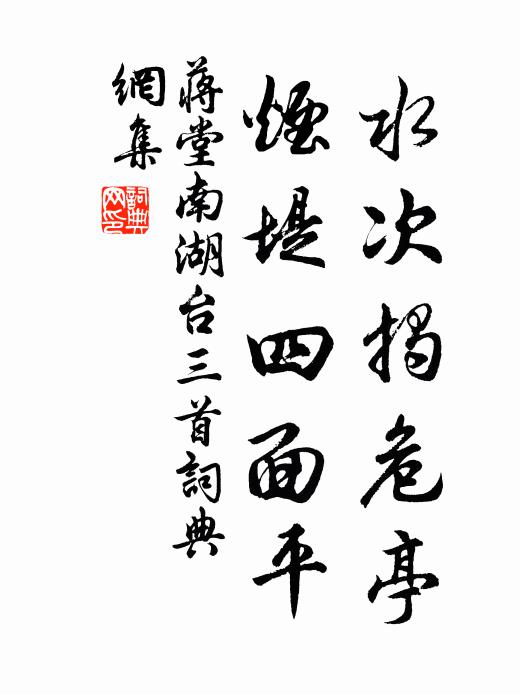 水次揭危亭
煙堤四面平
蔣堂南湖台三首詞典
網集
詞典
网印